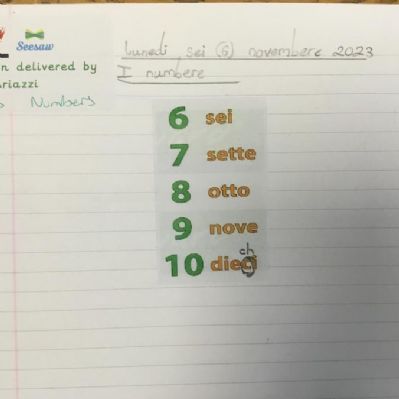 Seesaw
n delivered by
riazzi
Numbers
Lunedi sei (6) novembere 2023
I numbere
6 sei
7 sette
8 otto
9 nove
ch
10 dieci